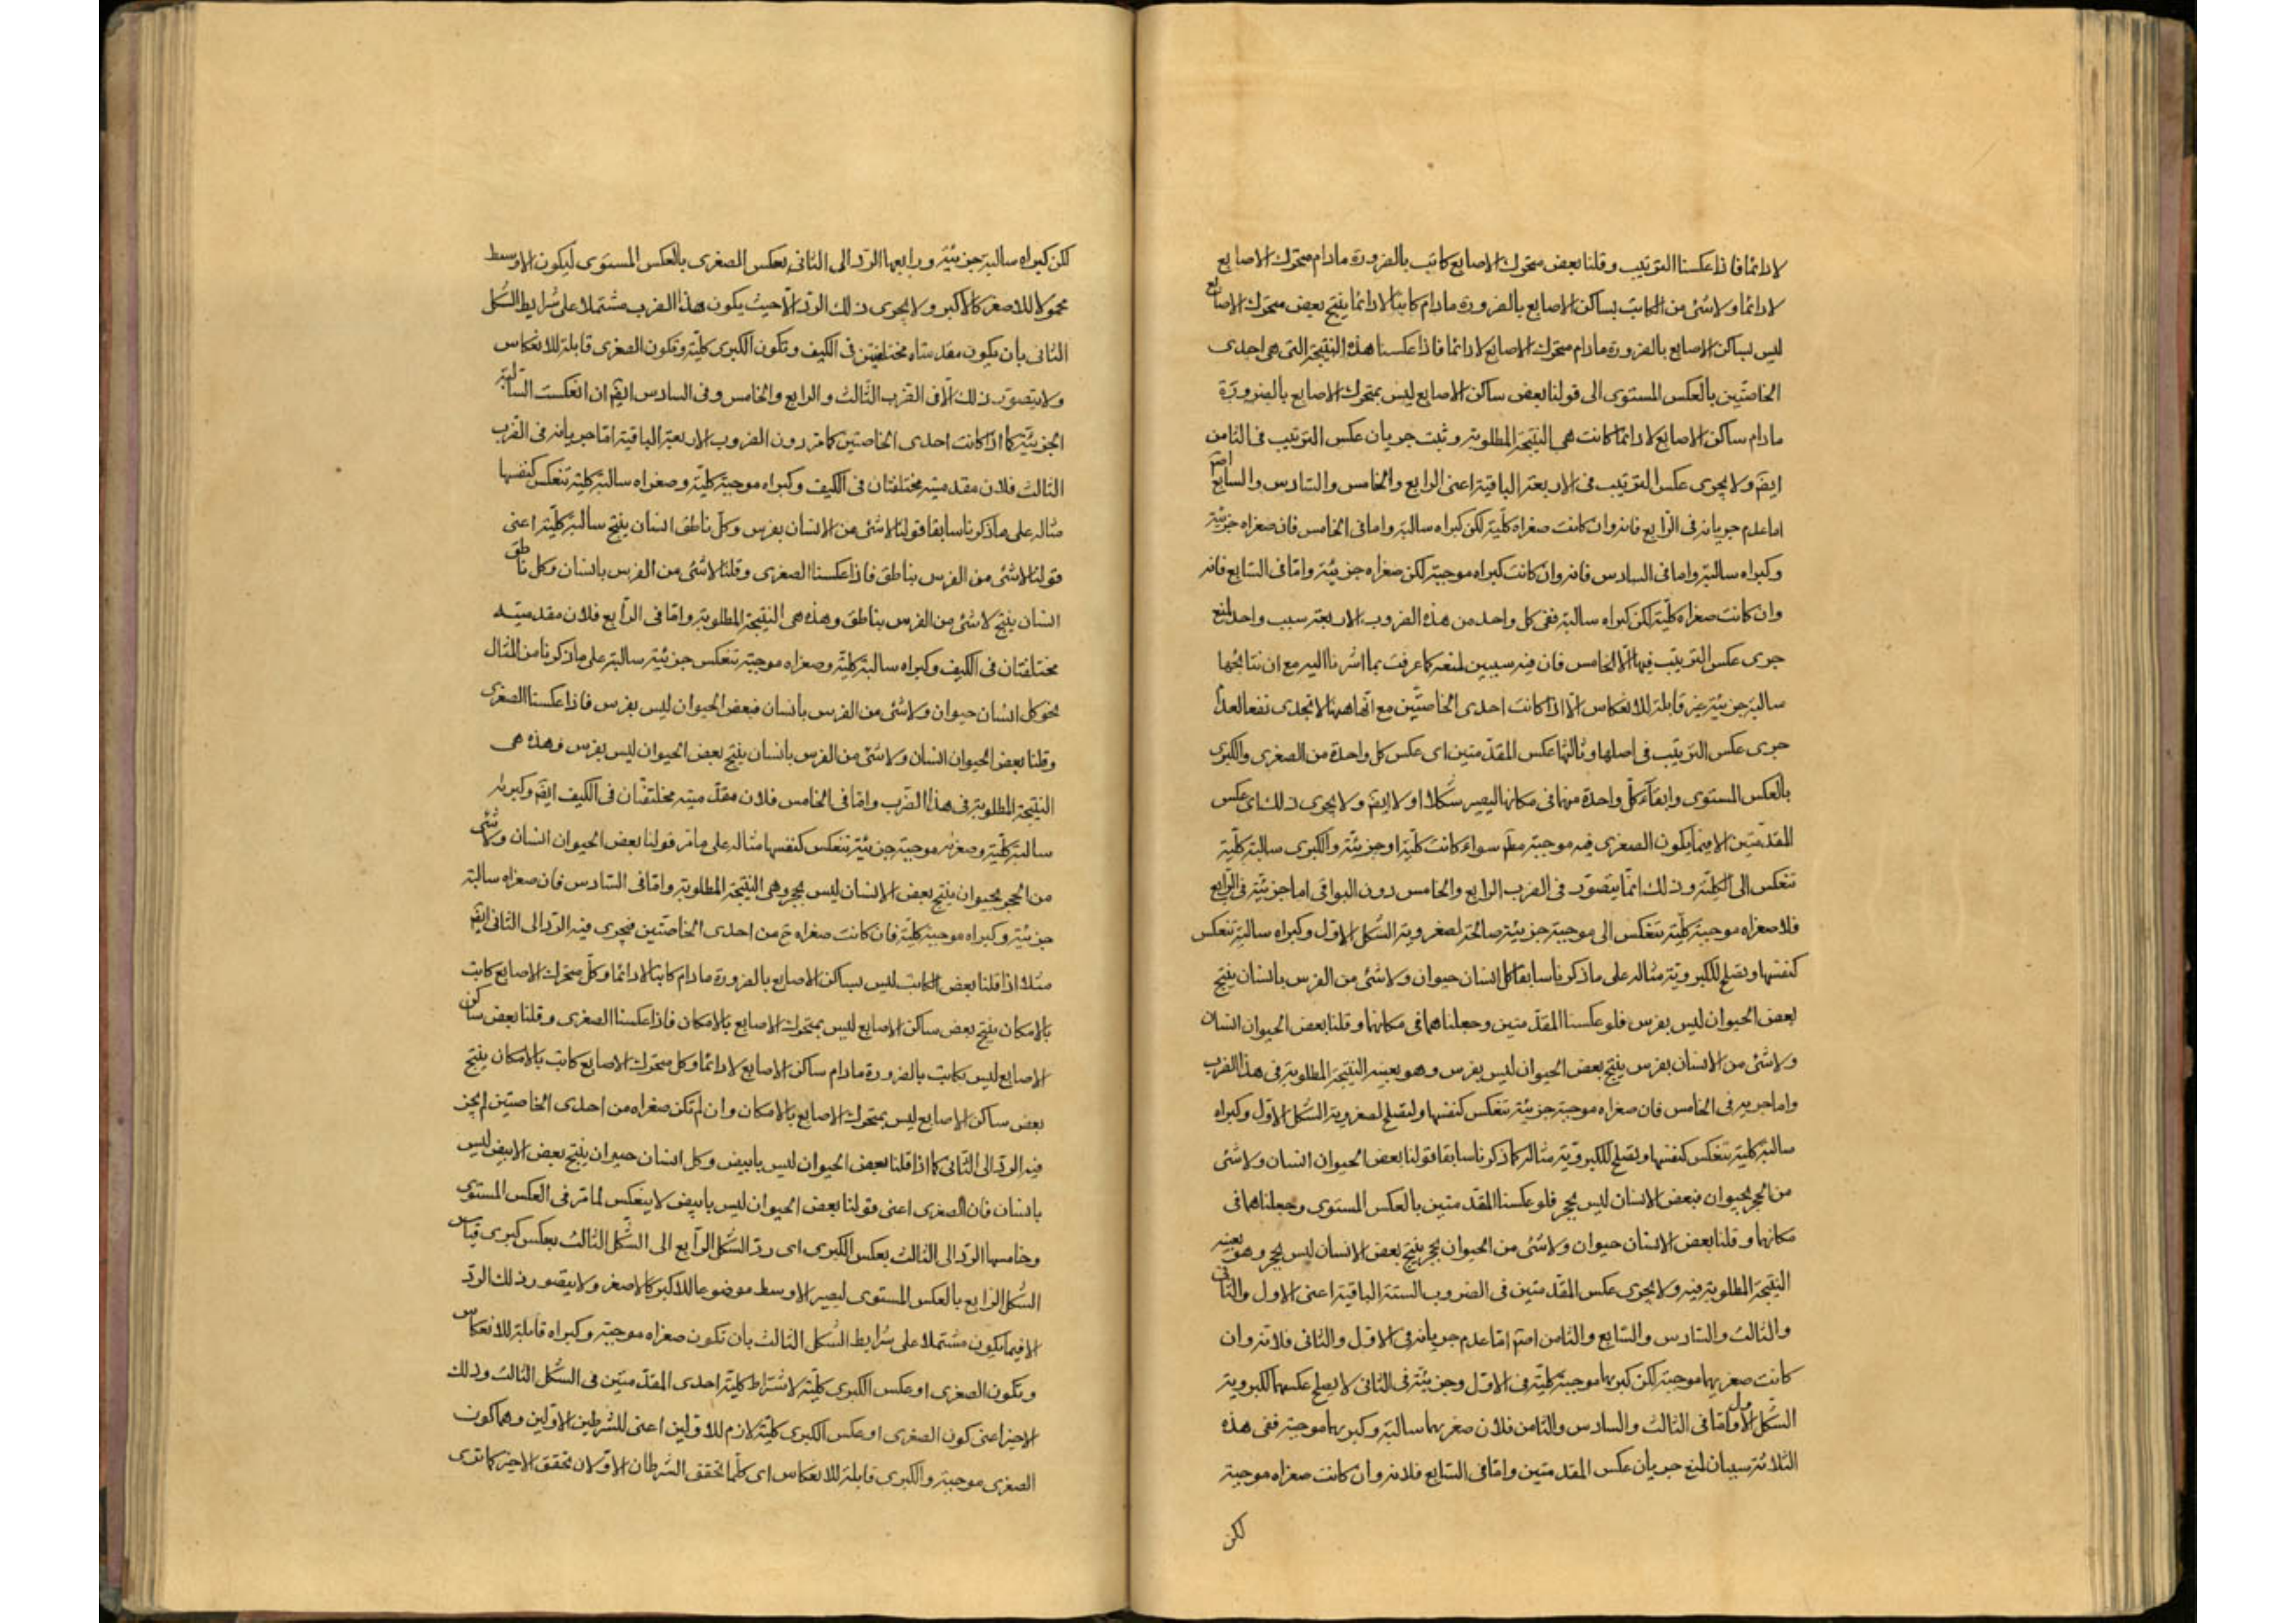 لادائما فاذا عكسنا الترتيب وقلنا بعض متحرك الاصابع كاتب بالضرورة مادام متحرك الاصابع
لادائما ولاشئ من الكاتب بساكن الاصابع بالضرورة مادام كاتبا لادائما ينتج بعض متحرك الاصابع
ليس بساكن الاصابع بالضرورة مادام متحرك الاصابع لادائما فاذا عكسنا هذه النتيجة التى هى احدى
الخاصتين بالعكس المستوى الى قولنا بعض ساكن الاصابع ليس بمتحرك الاصابع بالضرورة
مادام ساكن الاصابع لادائما كانت هى النتيجة المطلوبة وثبت جريان عكس الترتيب فى الثامن
ايضَ ولايجرى عكس الترتيب فى الاربعة الباقية اعنى الرابع والخامس والسادس والسابع
اما عدم جريانه فى الرابع فانه وان كانت صغراه كلّية لكن كبراه سالبة واما فى الخامس فان صغراه جزئيّة
وكبراه سالبة واما فى السادس فانه وان كانت كبراه موجبة لكن صغراه جزئيّة وامّا فى السابع فانه
وان كانت صغراه كلّية لكن كبراه سالبة ففى كل واحد من هذه الضروب الاربعة سبب واحد لمنع
جرى عكس الترتيب فيها الّا الخامس فان فيه سببين لمنعه كما عرفت بما اشرنا اليه مع ان نتائجها
سالبة جزئية غير قابلة للانعكاس الّا اذا كانت احدى الخاصّتين مع انّها ههنا لاتجدى نفعا لعدم
جرى عكس الترتيب فى اصلها وثالثها عكس المقدّمتين اى عكس كل واحدة من الصغرى والكبرى
بالعكس المستوى وابقآء كلّ واحدة منهما فى مكانها ليصير شكلا اولا ايضَ ولايجرى ذلك اى عكس
المقدّمتين الا فيما يكون الصغرى فيه موجبة مطَ سواء كانت كلّية او جزئيّة والكبرى سالبة كلّية
تنعكس الى الكلّية وذلك انّما يتصوّر فى الضرب الرابع والخامس دون البواقى اما جريه فى الرابع
فلان صغراه موجبة كلّية تنعكس الى موجبة جزئيّة صالحة لصغروية الشكل الاول وكبراه سالبة تنعكس
كنفسها وتصلح للكبروية مثاله على ماذكرنا سابقا كل انسان حيوان ولاشئ من الفرس بانسان ينتج
بعض الحيوان ليس بفرس فلو عكسنا المقدّمتين وجعلناهما فى مكانهما وقلنا بعض الحيوان انسان
ولاشئ من الانسان بفرس ينتج بعض الحيوان ليس بفرس وهو بعينه النتيجة المطلوبة فى هذا الضرب
واما جريه فى الخامس فان صغراه موجبة جزئيّة تنعكس كنفسها وليصلح لصغروية الشكل الاول وكبراه
سالبة كلية تنعكس كنفسها وتصلح للكبروية مثاله كما ذكرنا سابقا قولنا بعض الحيوان انسان ولاشئ
من الحجر بحيوان فبعض الانسان ليس بحجر فلو عكسنا المقدّمتين بالعكس المستوى وجعلناهما فى
مكانهما وقلنا بعض الانسان حيوان ولاشئ من الحيوان بحجر ينتج بعض الانسان ليس بحجر وهو بعينه
النتيجة المطلوبة فيه ولايجرى عكس المقدّمتين فى الضروب الستة الباقية اعنى الاول والثانى
والثالث والسادس والسابع والثامن امّا عدم جريانه فى الاول والثانى فلانه وان
كانت صغريهما موجبة لكن كبريهما موجبة كلية فى الاول وجزئيّة فى الثانى لايصلح عكسهما لكبروية
الشكل الاول وامّا فى الثالث والسادس والثامن فلان صغريهما سالبة وكبريهما موجبة ففى هذه
الثلاثة سببان لمنع جريان عكس المقدمتين وامّا فى السابع فلانه وان كانت صغراه موجبة
لكن
لكن كبراه سالبة جزئيّة ورابعها الردّ الى الثانى بعكس الصغرى بالعكس المستوى ليكون الاوسط
محمولا للاصغر كالاكبر ولايجرى ذلك الردّ الّا حيث يكون هذا الضرب مشتملا على شرايط الشكل
الثانى بأن يكون مقدمتاه مختلفتين فى الكيف وتكون الكبرى كلية وتكون الصغرى قابلة للانعكاس
ولايتصور ذلك الّا فى الضرب الثالث والرابع والخامس وفى السادس ايضَ ان انعكست السالبة
الجزئيّة كما اذا كانت احدى الخاصتين كما مرّ دون الضروب الاربعة الباقية امّا جريانه فى الضرب
الثالث فلان مقدميته مختلفتان فى الكيف وكبراه موجبة كلية وصغراه سالبة كلية تنعكس كنفسها
مثاله على ماذكرنا سابقا قولنا لاشئ من الانسان بفرس وكلّ ناطق انسان ينتج سالبة كلّية اعنى
قولنا لاشئ من الفرس بناطق فاذا عكسنا الصغرى وقلنا لاشئ من الفرس بانسان وكل ناطق
انسان ينتج لاشئ من الفرس بناطق وهذه هى النتيجة المطلوبة وامّا فى الرّابع فلان مقدميته
مختلفتان فى الكيف وكبراه سالبة كلية وصغراه موجبة تنعكس جزئية سالبة على ماذكرنا من المثال
نحو كل انسان حيوان ولاشئ من الفرس بانسان فبعض الحيوان ليس بفرس فاذا عكسنا الصغرى
وقلنا بعض الحيوان انسان ولاشئ من الفرس بانسان ينتج بعض الحيوان ليس بفرس وهذه هى
النتيجة المطلوبة فى هذا الضرب وامّا فى الخامس فلان مقدّميته مختلفتان فى الكيف ايضَ وكبريه
سالبة كلّية وصغريه موجبة جزئيّة تنعكس كنفسها مثاله على مامّر قولنا بعض الحيوان انسان ولاشئ
من الحجر بحيوان ينتج بعض الانسان ليس بحجر وهى النتيجة المطلوبة وامّا فى السّادس فان صغراه سالبة
جزئيّة وكبراه موجبة كلّية فان كانت صغراه حَ من احدى الخاصّتين فيجرى فيه الردّ الى الثانى ايضَ
مثلا اذا قلنا بعض الكاتب ليس بساكن الاصابع بالضرورة مادام كاتبا لادائما وكلّ متحرك الاصابع كاتب
بالامكان ينتج بعض ساكن الاصابع ليس بمتحرك الاصابع بالامكان فاذا عكسنا الصغرى وقلنا بعض ساكن
الاصابع ليس بكاتب بالضرورة مادام ساكن الاصابع لادائما وكل متحرك الاصابع كاتب بالامكان ينتج
بعض ساكن الاصابع ليس بمتحرك الاصابع بالامكان وان لم تكن صغراه من احدى الخاصتين لم يجز
فيه الردّ الى الثّانى كما اذا قلنا بعض الحيوان ليس بابيض وكل انسان حيوان ينتج بعض الابيض ليس
بانسان فان الصغرى اعنى قولنا بعض الحيوان ليس بابيض لاينعكس لما مرّ فى العكس المستوى
وخامسها الردّ الى الثالث بعكس الكبرى اى ردّ الشكل الرّابع الى الشّكل الثالث بعكس كبرى قياس
الشكل الرابع بالعكس المستوى ليصير الاوسط موضوعا للاكبر كالاصغر ولايتصور ذلك الردّ
الا فيما يكون مشتملا على شرايط الشكل الثالث بان تكون صغراه موجبة وكبراه قابلة للانعكاس
وتكون الصغرى او عكس الكبرى كلّية لاشتراط كلّية احدى المقدّمتين فى الشكل الثالث وذلك
الاخير اعنى كون الصغرى او عكس الكبرى كلّية لازم للاولين اعنى للشرطين الاولين وهما كون
الصغرى موجبة والكبرى قابلة للانعكاس اى كلّما تحقق الشرطان الاوّلان تحقق الاخير كما ترى